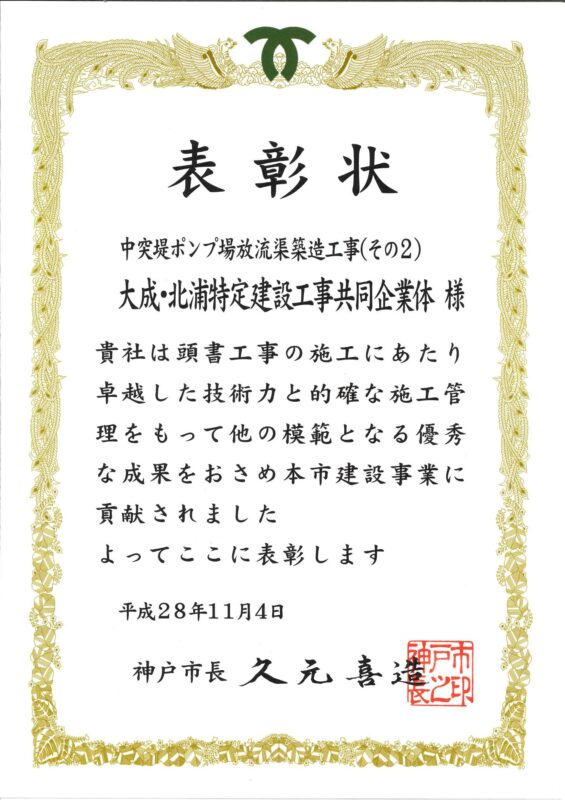 表彰状
中突堤ポンプ場放流渠築造工事(その2)
大成・北浦特定建設工事共同企業体 様
貴社は頭書工事の施工にあたり
卓越した技術力と的確な施工管
理をもって他の模範となる優秀
な成果をおさめ本市建設事業に
貢献されました
よってここに表彰します
平成28年11月4日
神戸市長 久元喜造
神戸市長之印